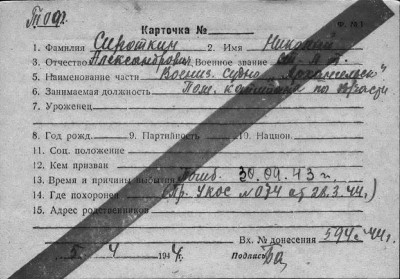 Карточка №
Ф. № 1
1. Фамилия Сироткин 2. Имя Николай
3. Отчество Александрович Военное звание
5. Наименование части Воениз. судно „Архангельск"
6. Занимаемая должность Пом. капитана по
7. Уроженец
8. Год рожд. 9. Партийность 10. Национ.
11. Соц. положение
12. Кем призван
13. Время и причины выбытия Погиб. 30.09.43 г.
14. Где похоронен (Пр. УКОС № 074 от 28.3.44.)
15. Адрес родственников
Вх. № донесения 594с-44г.
5 4 1944г. Подпись